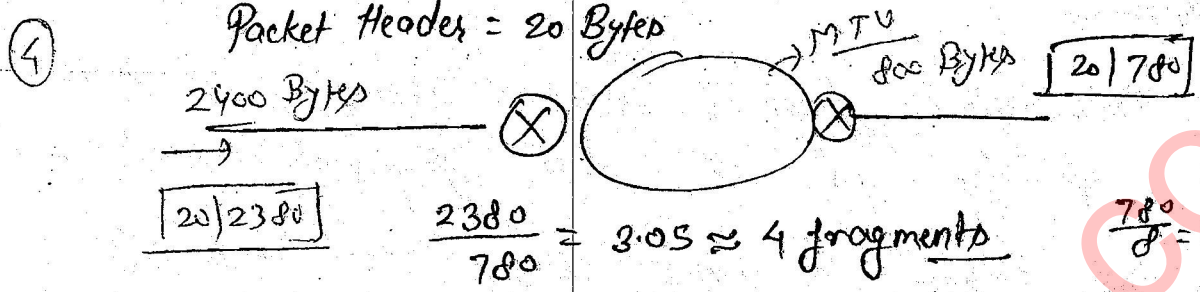 4 Packet Header = 20 Bytes
MTU
800 Bytes
20 | 780
2400 Bytes
20 | 2380
2380 / 780 = 3.05 ≈ 4 fragments
780 / 8 =